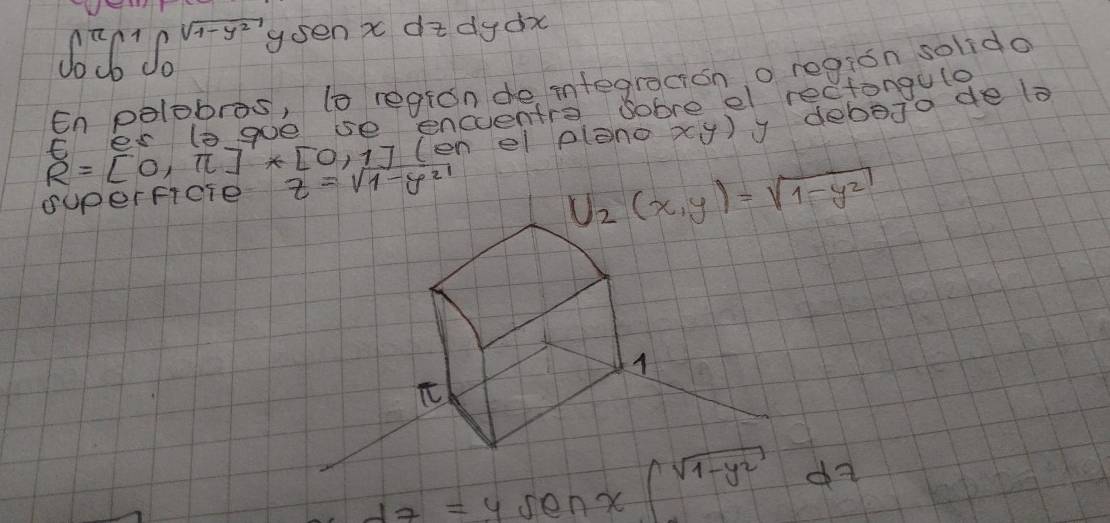 ∫₀^π ∫₀^1 ∫₀^√(1-y²) y sen x dz dy dx
En palabras, la región de integración o región solida
E es la que se encuentra sobre el rectangulo
R = [0, π] * [0,1] (en el plano xy) y debajo de la
superficie z = √(1-y²)
U₂ (x,y) = √(1-y²)
π
1
dz = y sen x ∫^√(1-y²) dz